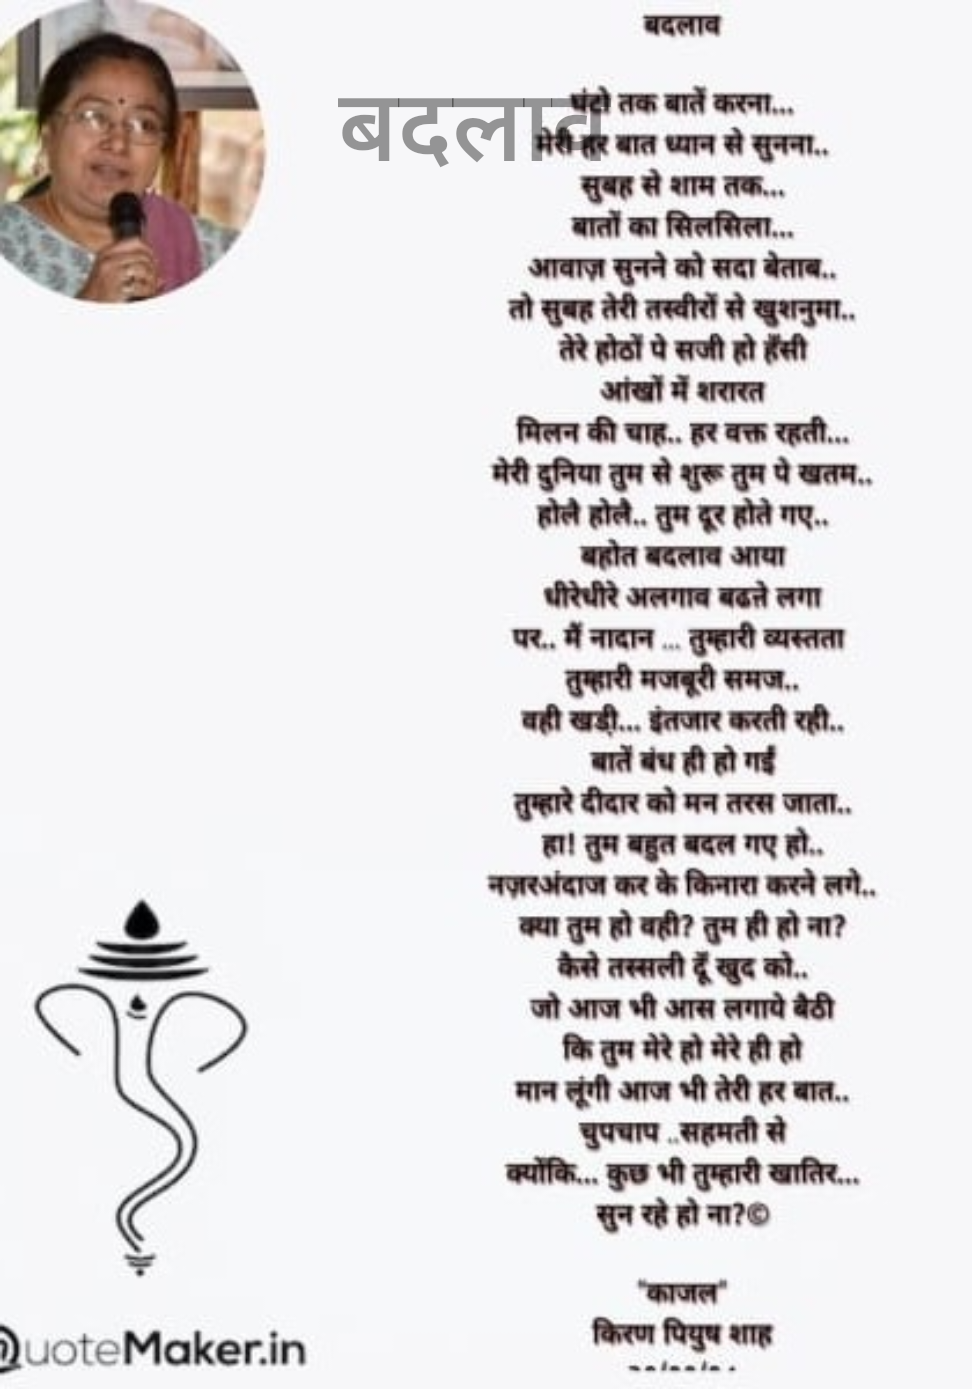 बदलाव
बदलाव
घंटो तक बातें करना...
मेरी हर बात ध्यान से सुनना..
सुबह से शाम तक...
बातों का सिलसिला...
आवाज़ सुनने को सदा बेताब..
तो सुबह तेरी तस्वीरों से खुशनुमा..
तेरे होठों पे सजी हो हँसी
आंखों में शरारत
मिलन की चाह.. हर वक्त रहती...
मेरी दुनिया तुम से शुरू तुम पे खतम..
होलै होलै.. तुम दूर होते गए..
बहोत बदलाव आया
धीरेधीरे अलगाव बढने लगा
पर.. मैं नादान ... तुम्हारी व्यस्तता
तुम्हारी मजबूरी समज..
वही खडी़... इंतजार करती रही..
बातें बंध ही हो गईं
तुम्हारे दीदार को मन तरस जाता..
हा! तुम बहुत बदल गए हो..
नज़रअंदाज कर के किनारा करने लगे..
क्या तुम हो वही? तुम ही हो ना?
कैसे तस्सली दूँ खुद को..
जो आज भी आस लगाये बैठी
कि तुम मेरे हो मेरे ही हो
मान लूंगी आज भी तेरी हर बात..
चुपचाप ..सहमती से
क्योंकि... कुछ भी तुम्हारी खातिर...
सुन रहे हो ना?©
"काजल"
किरण पियुष शाह
QuoteMaker.in